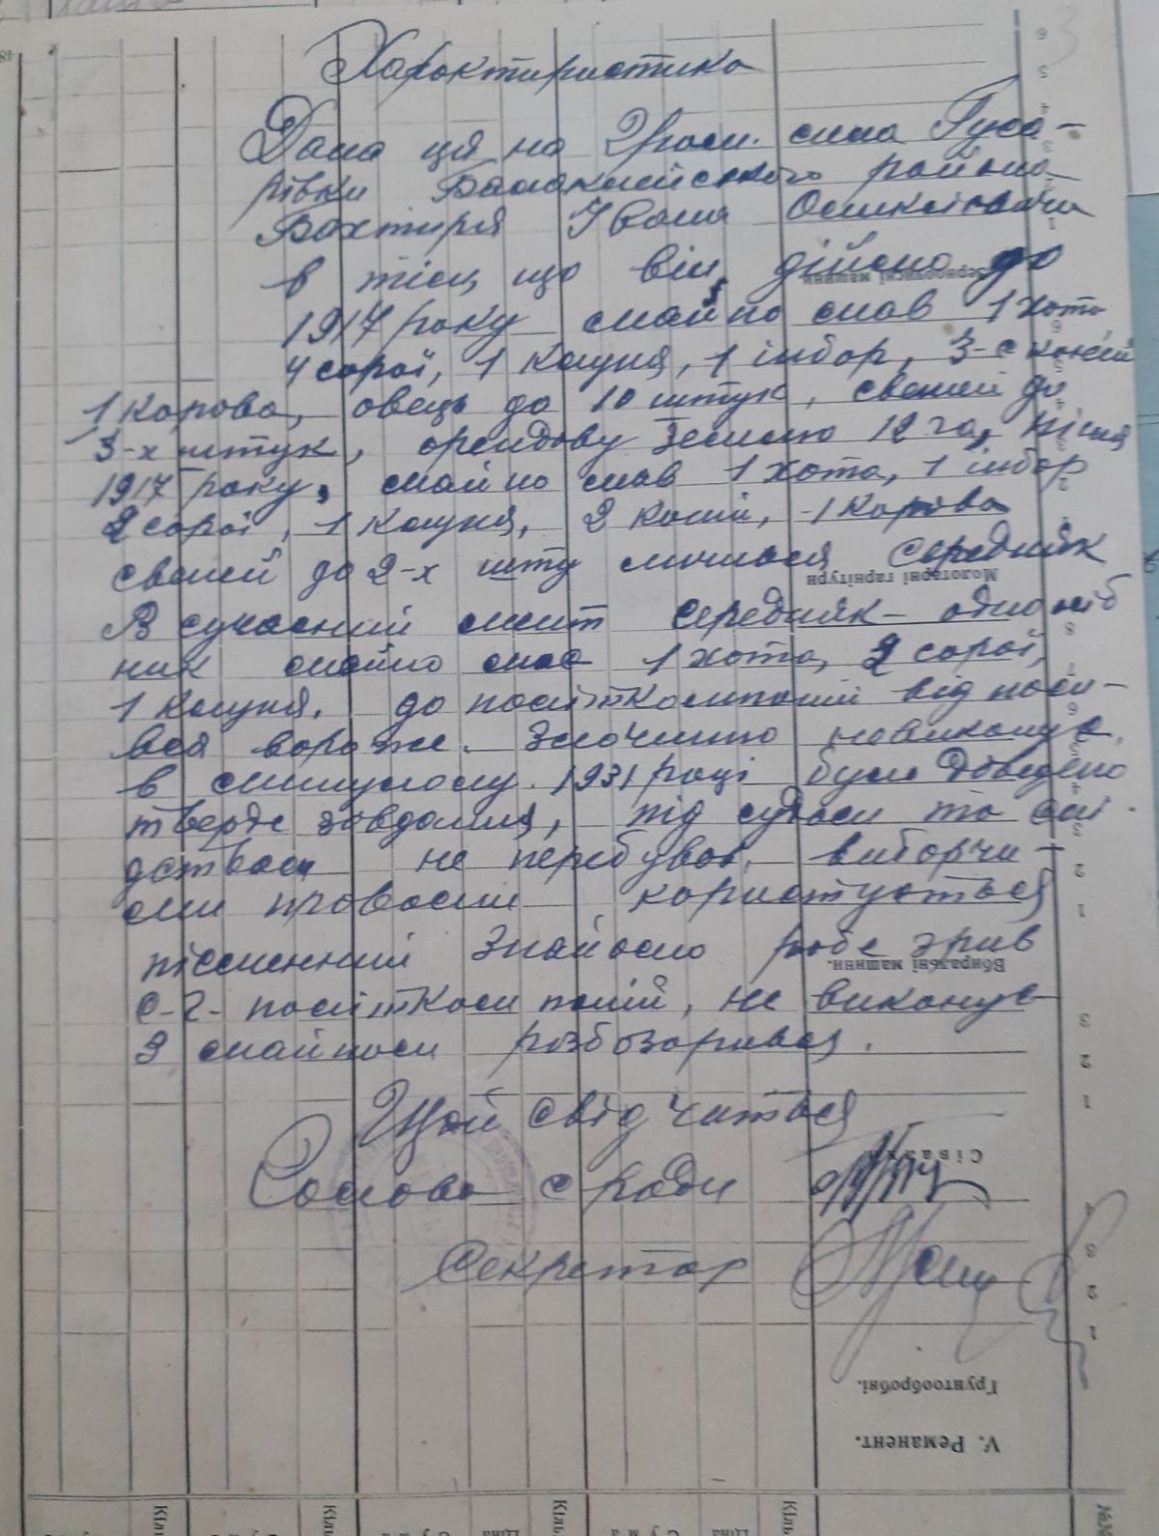 Характиристика
Дана ця на Гром. села Гуса-
рівки Балаклійського району
Бахтиря Івана Оликсіовича
в тім, що він дійсно до
1917 року майно мав 1 хата
4 сараї, 1 клуня, 1 інбар, 3-є коний
1 корова, овець до 10 штук, свеней до
3-х штук, орендову землю 12 га, після
1917 року, майно мав 1 хата, 1 інбар
2 сараї, 1 клуня, 2 коний, 1 корова
свеней до 2-х шту лишився середняк
В сучасний мит середняк-одноосіб
ник майно має 1 хата, 2 сараї,
1 клуня. до політкомпаній відноси-
вся вороже. Значимо невиконує,
в минулому 1931 році було доведено
тверде завдання, під судом та слі
дством не перебував, виборчи-
ми правами користується
писменний Знайомо робе зрив
с-г- політком паній, не виконує
З майном розбозарився.
Щой свідчиться
Голова с ради
Секретар
Зерноочисні машини
Молотарні гарнітури
Збиральні машини.
Сівалки
Грунтообробні.
V. Реманент.
Кіль.
Кіль.
Ціна
Сума
Кіль.
Ціна
Сума
Кіль.